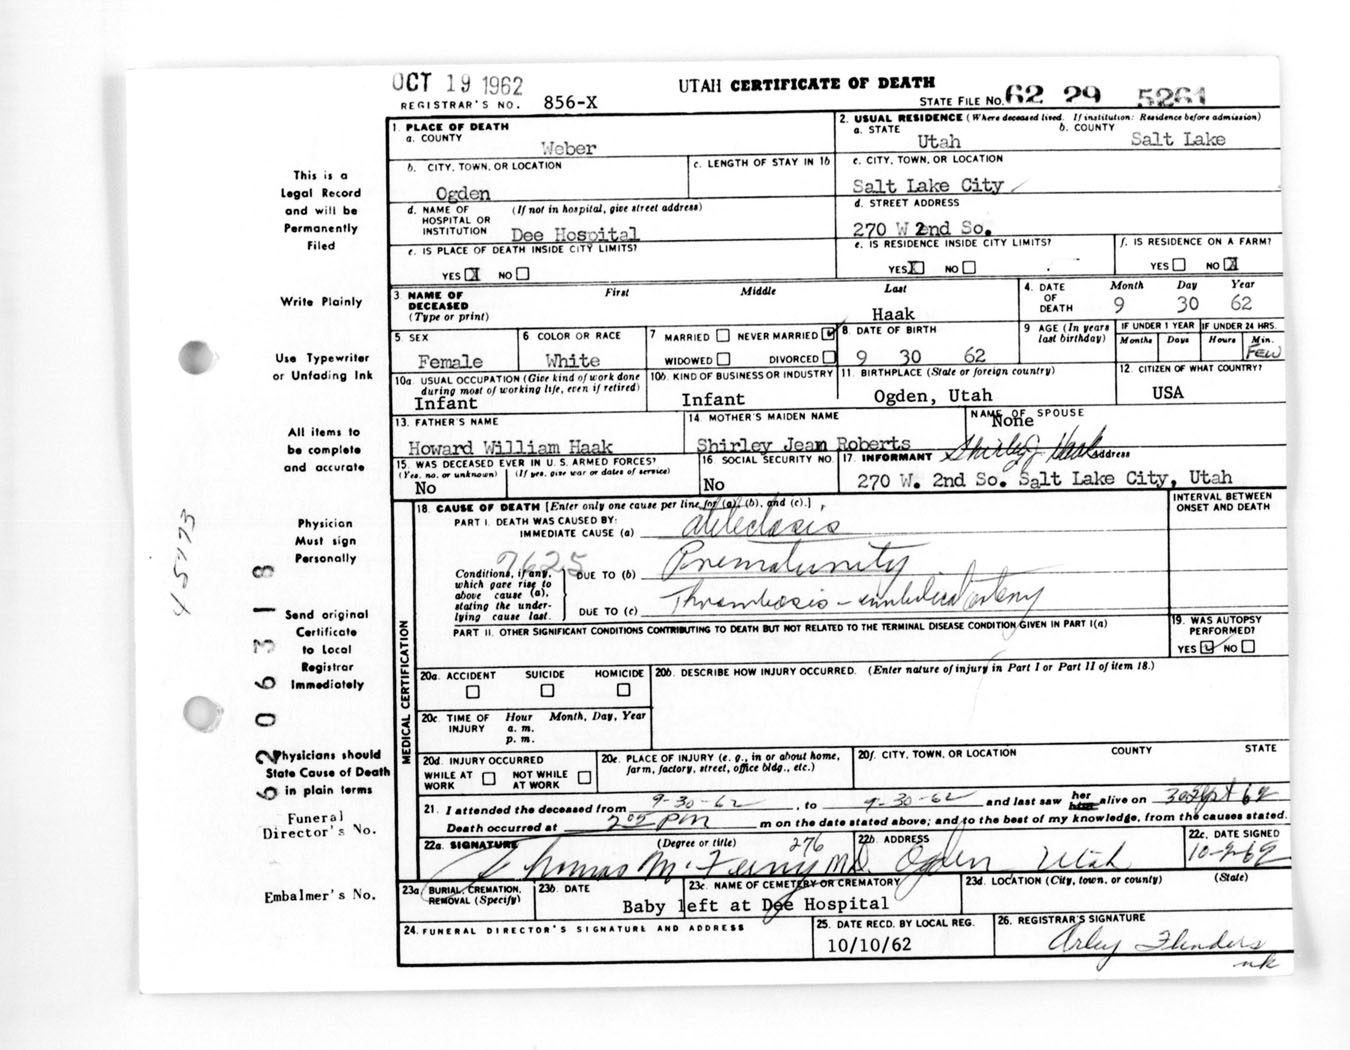 OCT 19 1962
UTAH CERTIFICATE OF DEATH
REGISTRAR'S NO. 856-X
STATE FILE NO. 62 29 5261
1. PLACE OF DEATH
a. COUNTY
Weber
2. USUAL RESIDENCE (Where deceased lived. If institution: Residence before admission)
a. STATE
Utah
b. COUNTY
Salt Lake
b. CITY, TOWN, OR LOCATION
Ogden
c. LENGTH OF STAY IN 1b
c. CITY, TOWN, OR LOCATION
Salt Lake City
d. NAME OF HOSPITAL OR INSTITUTION
(If not in hospital, give street address)
Dee Hospital
d. STREET ADDRESS
270 W 2nd So.
e. IS PLACE OF DEATH INSIDE CITY LIMITS?
YES X NO
e. IS RESIDENCE INSIDE CITY LIMITS?
YES X NO
f. IS RESIDENCE ON A FARM?
YES NO X
3. NAME OF DECEASED
(Type or print)
First Middle Last
Haak
4. DATE OF DEATH
Month Day Year
9 30 62
5. SEX
Female
6 COLOR OR RACE
White
7 MARRIED NEVER MARRIED
WIDOWED DIVORCED
8. DATE OF BIRTH
9 30 62
9 AGE (In years last birthday)
IF UNDER 1 YEAR
Months Days
IF UNDER 24 HRS.
Hours Min.
FEW
10a. USUAL OCCUPATION (Give kind of work done during most of working life, even if retired)
Infant
10b. KIND OF BUSINESS OR INDUSTRY
Infant
11. BIRTHPLACE (State or foreign country)
Ogden, Utah
12. CITIZEN OF WHAT COUNTRY?
USA
13. FATHER'S NAME
Howard William Haak
14. MOTHER'S MAIDEN NAME
Shirley Jean Roberts
NAME OF SPOUSE
None
15. WAS DECEASED EVER IN U. S. ARMED FORCES?
(Yes, no, or unknown) (If yes, give war or dates of service)
No
16. SOCIAL SECURITY NO.
No
17. INFORMANT Shirley J Haak Address
270 W. 2nd So. Salt Lake City, Utah
18. CAUSE OF DEATH [Enter only one cause per line for (a), (b), and (c).]
INTERVAL BETWEEN ONSET AND DEATH
PART I. DEATH WAS CAUSED BY:
IMMEDIATE CAUSE (a) atelectasis
7625
Conditions, if any, which gave rise to above cause (a), stating the underlying cause last.
DUE TO (b) Prematurity
DUE TO (c) Thrombosis - umbilical artery
PART II. OTHER SIGNIFICANT CONDITIONS CONTRIBUTING TO DEATH BUT NOT RELATED TO THE TERMINAL DISEASE CONDITION GIVEN IN PART I(a)
19. WAS AUTOPSY PERFORMED?
YES NO
MEDICAL CERTIFICATION
20a. ACCIDENT SUICIDE HOMICIDE
20b. DESCRIBE HOW INJURY OCCURRED. (Enter nature of injury in Part I or Part II of item 18.)
20c. TIME OF INJURY
Hour Month, Day, Year
a. m.
p. m.
20d. INJURY OCCURRED
WHILE AT WORK NOT WHILE AT WORK
20e. PLACE OF INJURY (e. g., in or about home, farm, factory, street, office bldg., etc.)
20f. CITY, TOWN, OR LOCATION COUNTY STATE
21. I attended the deceased from 9-30-62, to 9-30-62 and last saw her him alive on 30 Sept 62
Death occurred at 2:05 PM m on the date stated above; and to the best of my knowledge, from the causes stated.
22a. SIGNATURE (Degree or title) 276
22b. ADDRESS
Ogden Utah
22c. DATE SIGNED
10-9-62
23a. BURIAL, CREMATION, REMOVAL (Specify)
23b. DATE
23c. NAME OF CEMETERY OR CREMATORY
23d. LOCATION (City, town, or county) (State)
Baby left at Dee Hospital
24. FUNERAL DIRECTOR'S SIGNATURE AND ADDRESS
25. DATE RECD. BY LOCAL REG.
10/10/62
26. REGISTRAR'S SIGNATURE
Arley Flinders
nk
This is a
Legal Record
and will be
Permanently
Filed
Write Plainly
Use Typewriter
or Unfading Ink
All items to
be complete
and accurate
Physician
Must sign
Personally
Send original
Certificate
to Local
Registrar
Immediately
Physicians should
State Cause of Death
in plain terms
Funeral
Director's No.
Embalmer's No.